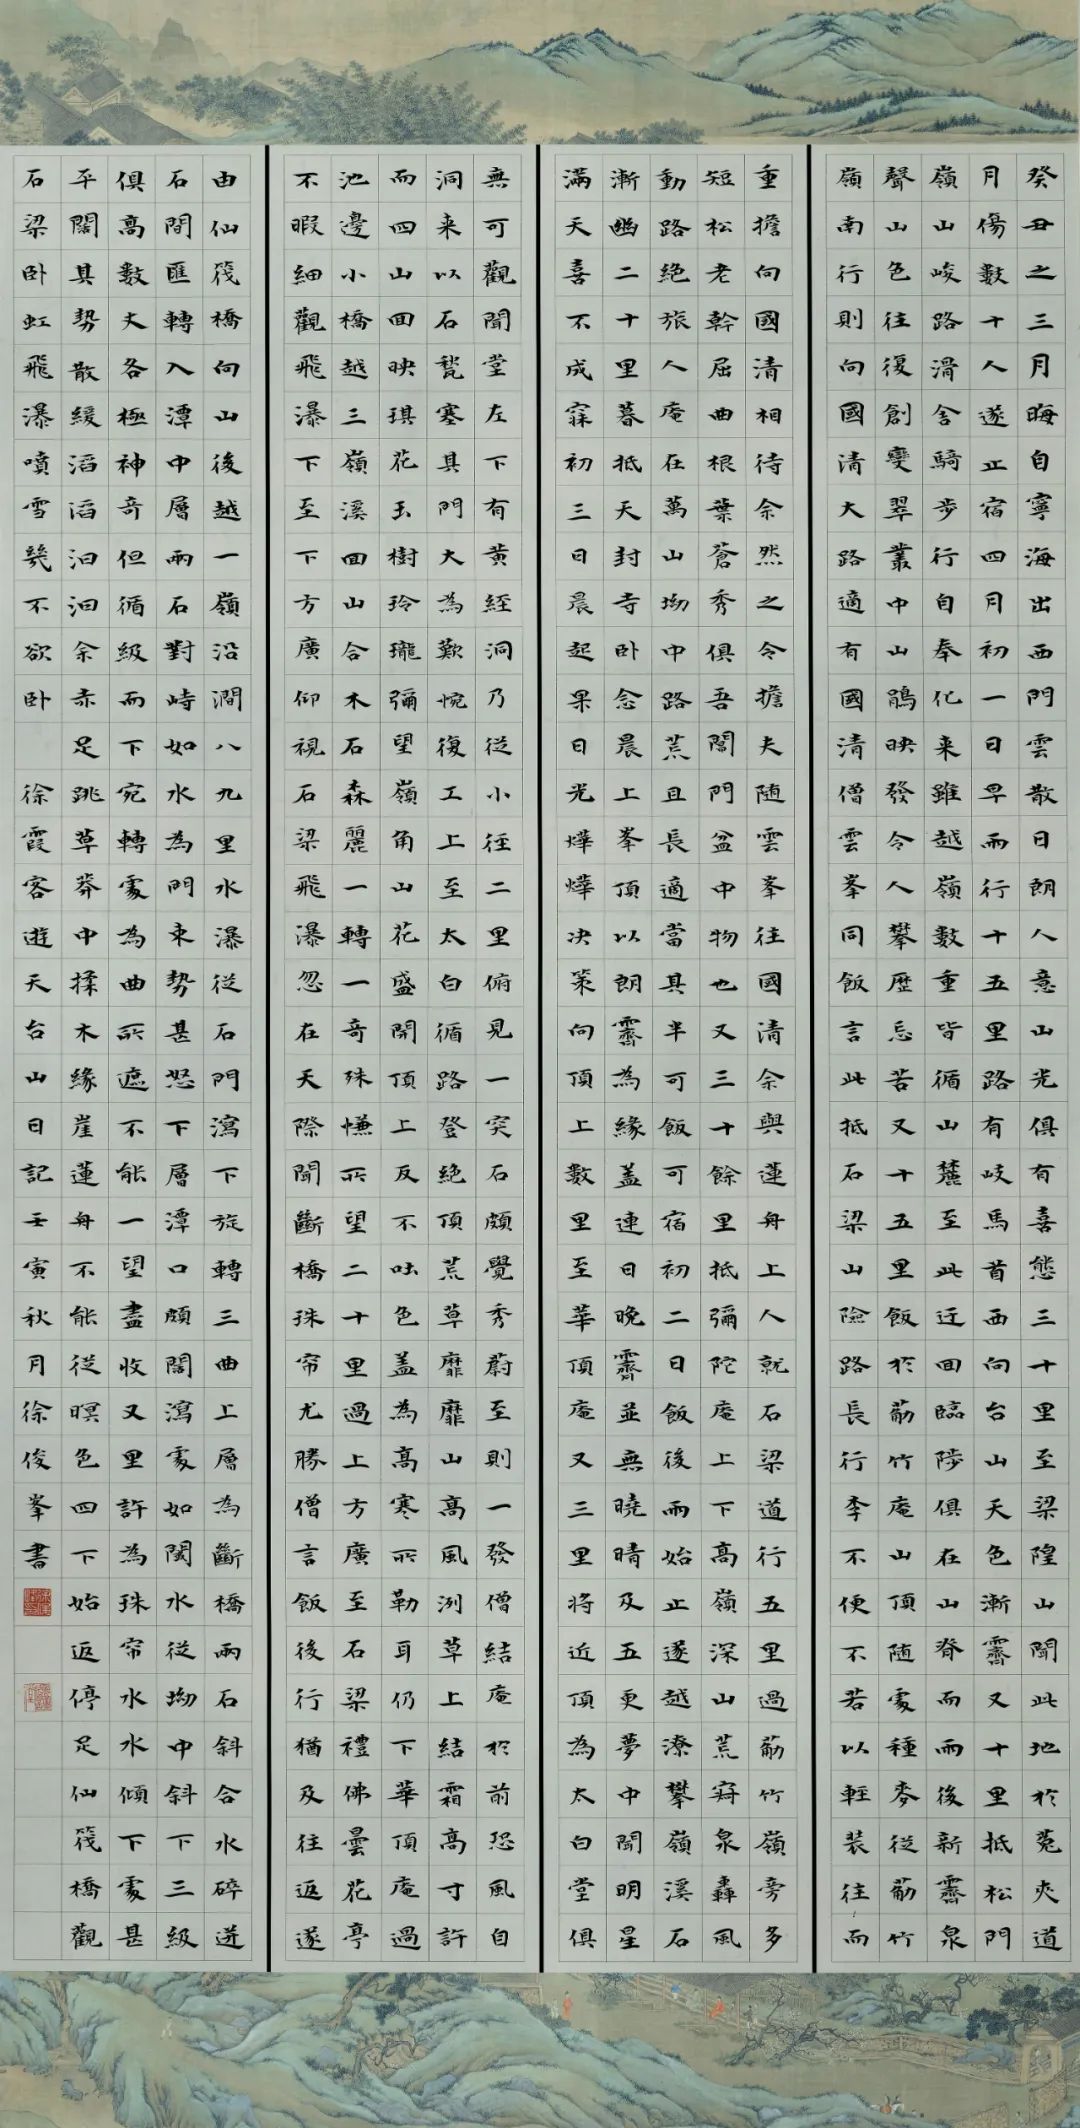 癸丑之三月晦自寧海出西門雲散日朗人意山光俱有喜態三十里至梁隍山聞此地於菟夾道
月傷數十人遂止宿四月初一日早雨行十五里路有岐馬首西向台山天色漸霽又十里抵松門
嶺山峻路滑舍騎步行自奉化来雖越嶺數重皆循山麓至此迂回臨陟俱在山脊而雨後新霽泉
聲山色往復創變翠叢中山鵑映發令人攀歷忘苦又十五里飯於觔竹庵山頂随處種麥從觔竹
嶺南行則向國清大路適有國清僧雲峯同飯言此抵石梁山險路長行李不便不若以輕装往而
重擔向國清相待余然之令擔夫随雲峯往國清余與蓮舟上人就石梁道行五里過觔竹嶺旁多
短松老幹屈曲根葉蒼秀俱吾閶門盆中物也又三十餘里抵彌陀庵上下高嶺深山荒寂泉轟風
動路絕旅人庵在萬山坳中路荒且長適當其半可飯可宿初二日飯後雨始止遂越潦攀嶺溪石
漸幽二十里暮抵天封寺卧念晨上峯頂以朗霽為緣蓋連日晚霽並無曉晴及五更夢中聞明星
滿天喜不成寐初三日晨起果日光燁燁决策向頂上數里至華頂庵又三里將近頂為太白堂俱
無可觀聞堂左下有黄經洞乃從小徑二里俯見一突石頗覺秀蔚至則一發僧結庵於前恐風自
洞来以石甃塞其門大為歎惋復工上至太白循路登絕頂荒草靡靡山高風冽草上結霜高寸許
而四山回映琪花玉樹玲瓏彌望嶺角山花盛開頂上反不吐色蓋為高寒所勒耳仍下華頂庵過
池邊小橋越三嶺溪回山合木石森麗一轉一奇殊慊所望二十里過上方廣至石梁禮佛曇花亭
不暇細觀飛瀑下至下方廣仰視石梁飛瀑忽在天際聞斷橋珠帘尤勝僧言飯後行猶及往返遂
由仙筏橋向山後越一嶺沿澗八九里水瀑從石門瀉下旋轉三曲上層為斷橋兩石斜合水碎迸
石間匯轉入潭中層兩石對峙如水為門束勢甚怒下層潭口頗闊瀉處如閾水從坳中斜下三級
俱高數丈各極神奇但循級而下宛轉處為曲所遮不能一望盡收又里許為珠帘水水傾下處甚
平闊其勢散緩滔滔汩汩余赤足跳草莽中揉木緣崖蓮舟不能從暝色四下始返停足仙筏橋觀
石梁卧虹飛瀑噴雪幾不欲卧 徐霞客遊天台山日記壬寅秋月徐俊峯書